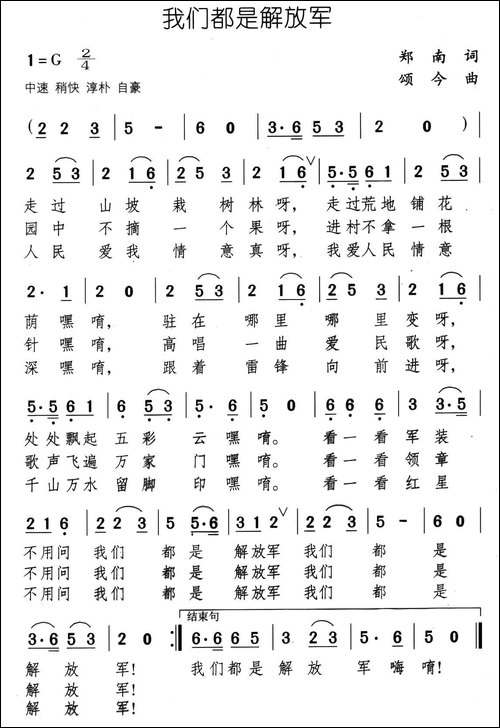 我们都是解放军
1=G 2/4
郑南 词
中速 稍快 淳朴 自豪
颂今 曲
(2 2 3 | 5 - | 6 0 | 3·6 5 3 | 2 0 )|
2 5 3 | 2 1 6 | 2 5 3 | 2 1 6 ∨| 5·5 6 1 | 6 1 2 |
走过 山坡 栽树林呀, 走过荒地铺花
园中 不摘 一个果呀, 进村不拿一根
人民 爱我 情意真呀, 我爱人民情意
2· 1 | 2 0 | 2 5 3 | 2 1 6 | 2 5 3 | 2 1 6 |
荫嘿唷, 驻在哪里哪里变呀,
针嘿唷, 高唱一曲爱民歌呀,
深嘿唷, 跟着雷锋向前进呀,
5·5 6 1 | 6 5 3 | 5· 6 | 5 0 | 6 6 6 | 3 3·5 |
处处飘起五彩云嘿唷。看一看军装
歌声飞遍万家门嘿唷。看一看领章
千山万水留脚印嘿唷。看一看红星
2 1 6 | 2 2 3 | 5 5·6 | 3 1 2 ∨| 2 2 3 | 5 - | 6 0 |
不用问 我们都是解放军 我们都是
不用问 我们都是解放军 我们都是
不用问 我们都是解放军 我们都是
结束句
3·6 5 3 | 2 0 :| 6·6 6 5 | 3 2 3 | 5· 6 | 5 0 |
解放军! 我们都是解放军嗨唷!
解放军!
解放军!